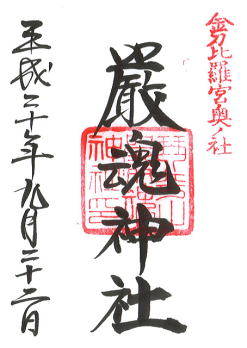 金刀比羅宮奥ノ社
嚴魂神社
平成二十年九月二十二日